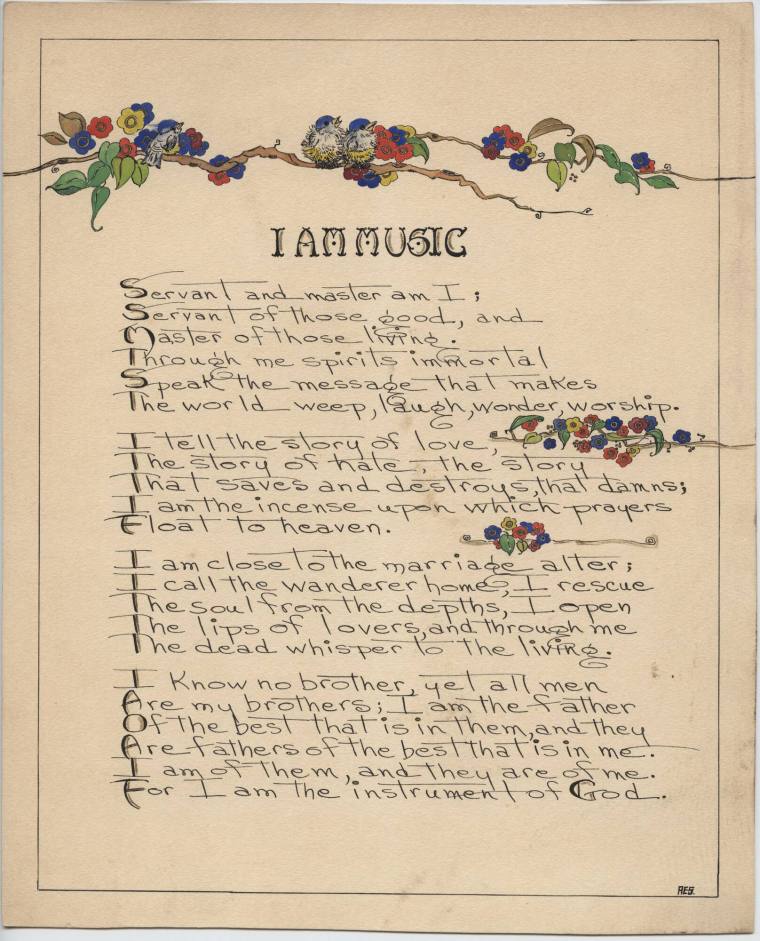 I AM MUSIC
Servant and master am I;
Servant of those good, and
Master of those living.
Through me spirits immortal
Speak the message that makes
The world weep, laugh, wonder, worship.
I tell the story of love,
The story of hate, the story
That saves and destroys, that damns;
I am the incense upon which prayers
Float to heaven.
I am close to the marriage alter;
I call the wanderer home, I rescue
The soul from the depths, I open
The lips of lovers, and through me
The dead whisper to the living.
I Know no brother, yet all men
Are my brothers; I am the father
Of the best that is in them, and they
Are fathers of the best that is in me.
I am of them, and they are of me.
For I am the instrument of God.
AES.